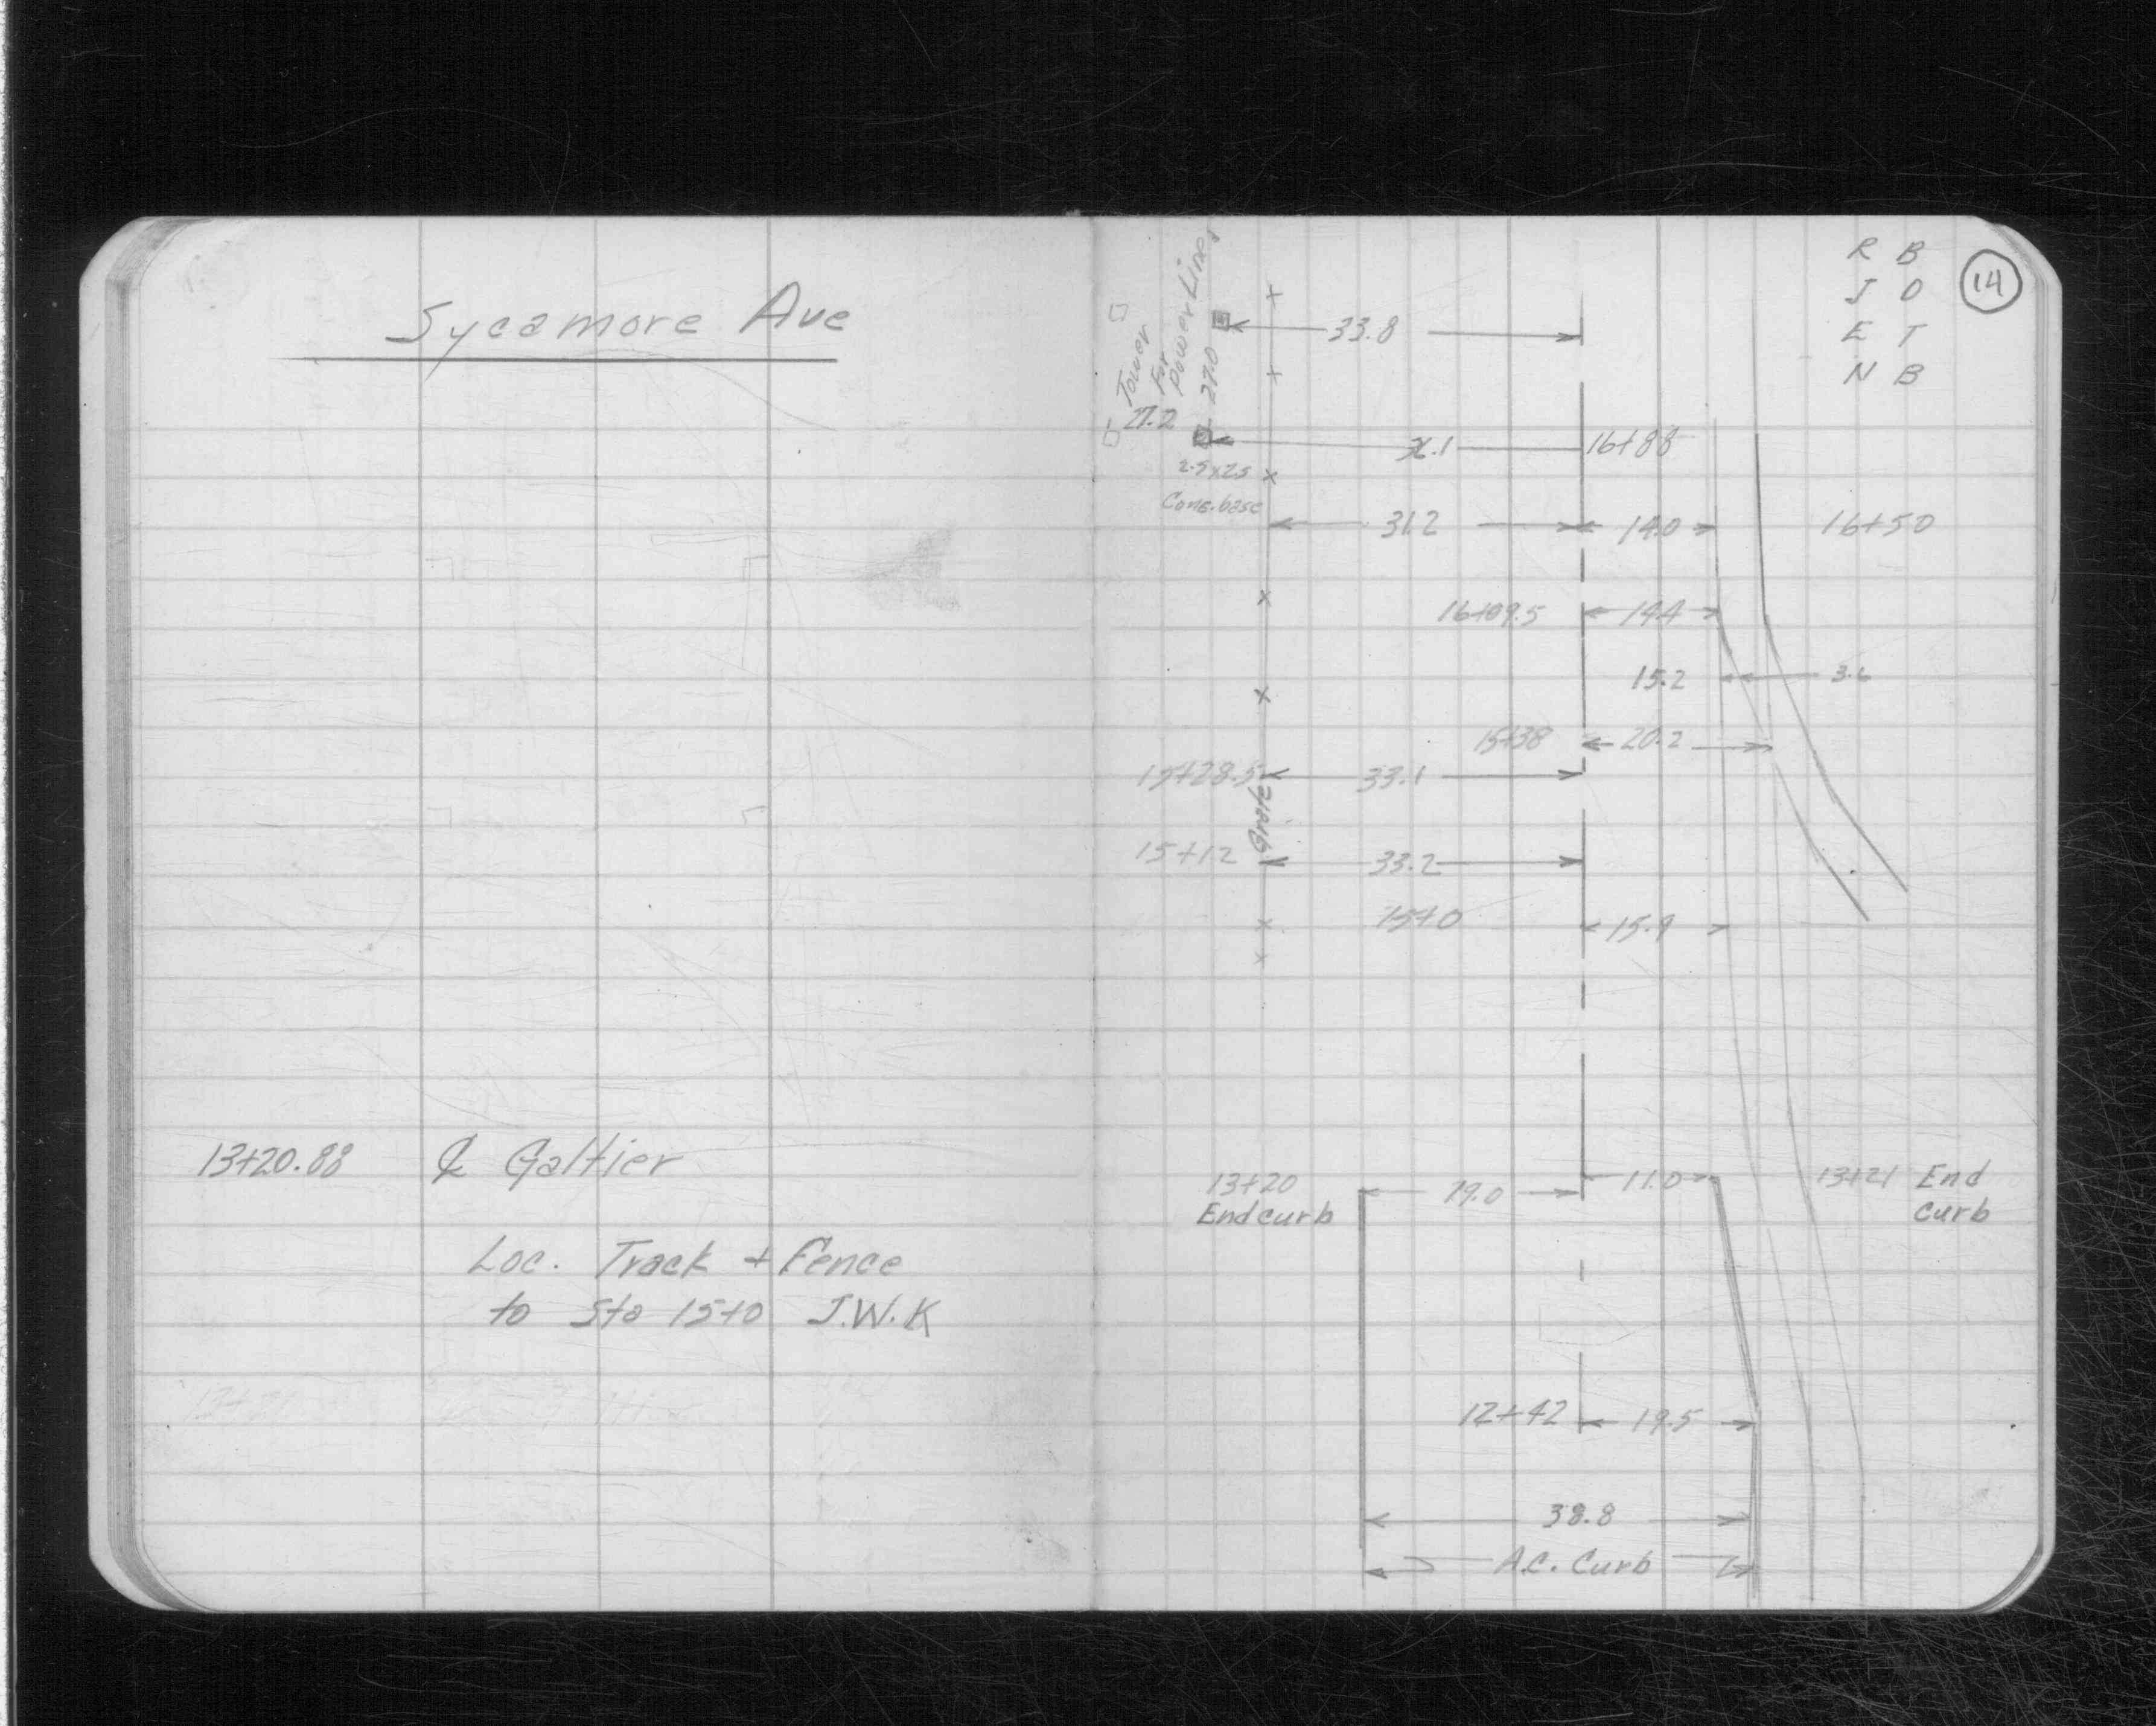 Sycamore Ave
13+20.88 ℄ Galtier
Loc. Track + Fence
to Sta 15+0 J.W.K
14
R B
J O
E T
N B
Tower
For
Power Lines
33.8
27.0
27.2
16+88
2.5x2.5
Conc. base
31.2 14.0 16+50
16+09.5 14.4
15.2 3.6
15+38 20.2
15+28.5 33.1
Gate
15+12 33.2
15+0 15.9
13+20 19.0 11.0 13+21 End
End curb Curb
12+42 19.5
38.8
A.C. Curb